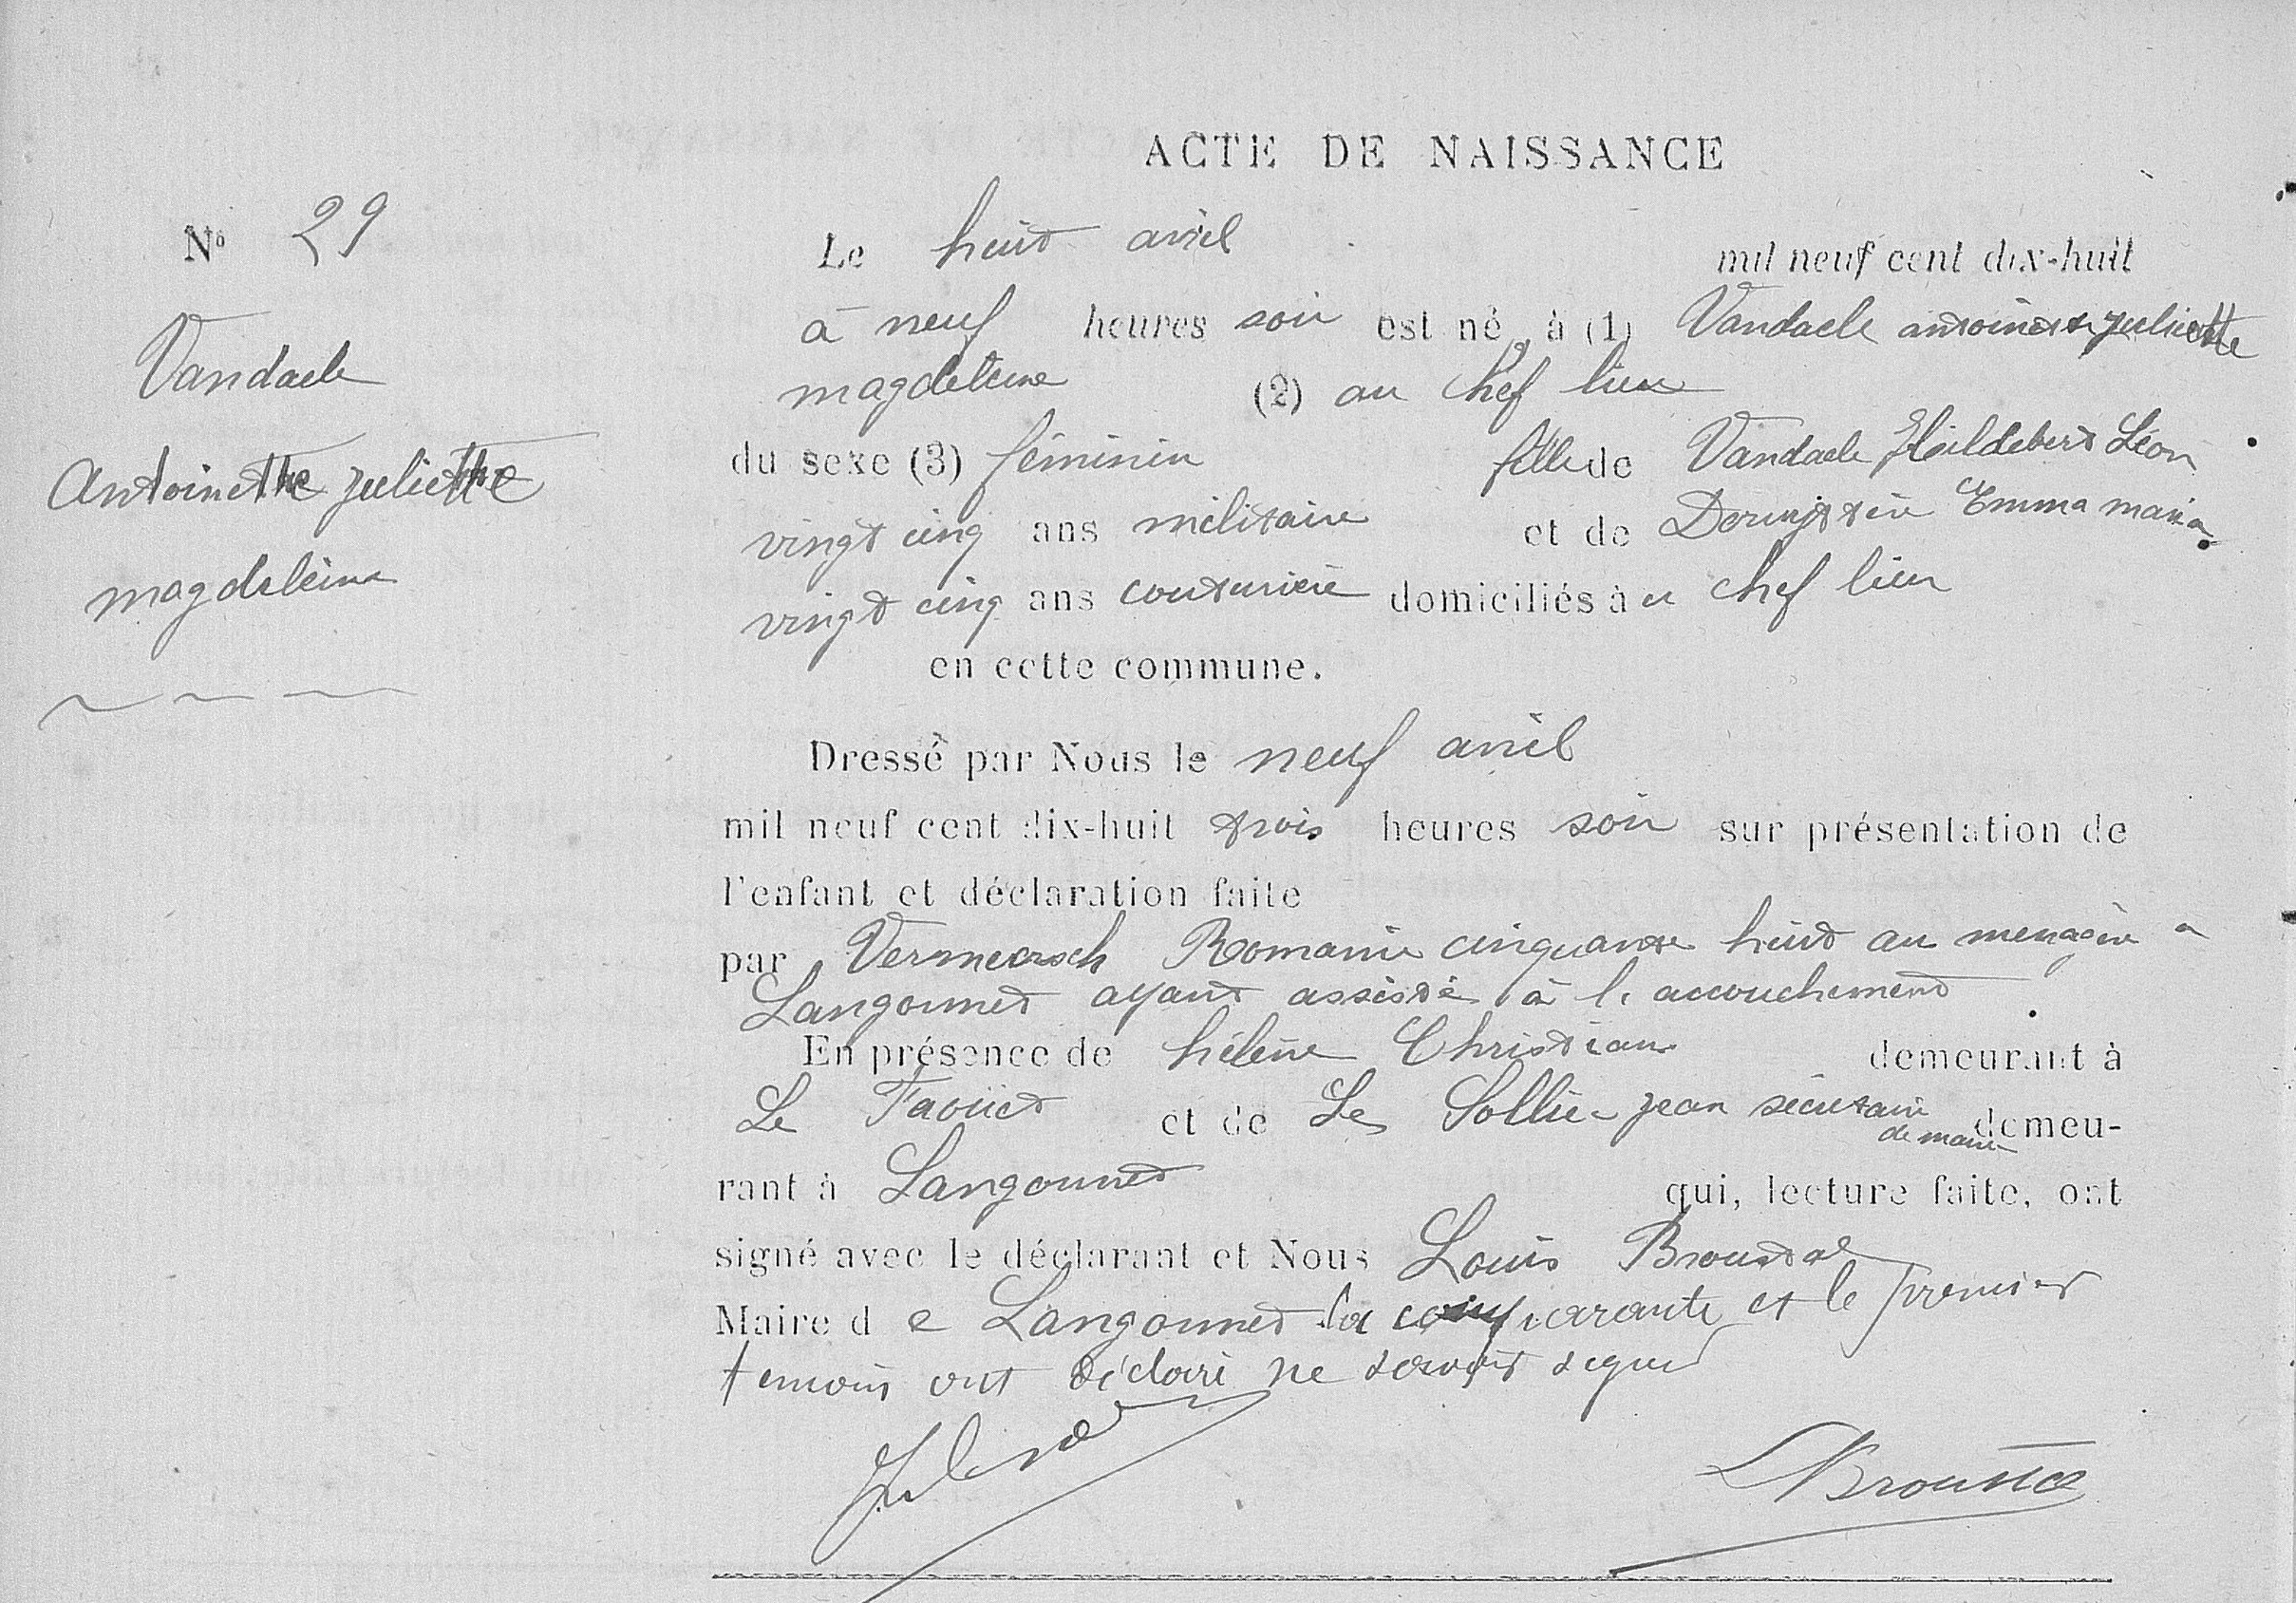 ACTE DE NAISSANCE
N° 29
Vandaele
Antoinette juliette
magdeleine
Le huit avril mil neuf cent dix-huit
à neuf heures soir est né, à (1) Vandaele antoinette juliette
magdeleine (2) au chef lieu
du sexe (3) féminin fille de Vandaele Hildebert Léon
vingt cinq ans militaire et de Emma maria
vingt cinq ans couturière domiciliés au chef lieu
en cette commune.
Dressé par Nous le neuf avril
mil neuf cent dix-huit trois heures soir sur présentation de
l'enfant et déclaration faite
par Vermeersch Romanie cinquante huit an menagère a
Langonnet ayant assisté à l'accouchement
En présence de hélène Christian demeurant à
Le Faouët et de Le Sollie jean secretaire
de mairie demeu-
rant à Langonnet qui, lecture faite, ont
signé avec le déclarant et Nous Louis Broustal
Maire de Langonnet la comparante et le premier
temoin ont déclaré ne savoir signer
LBroustal